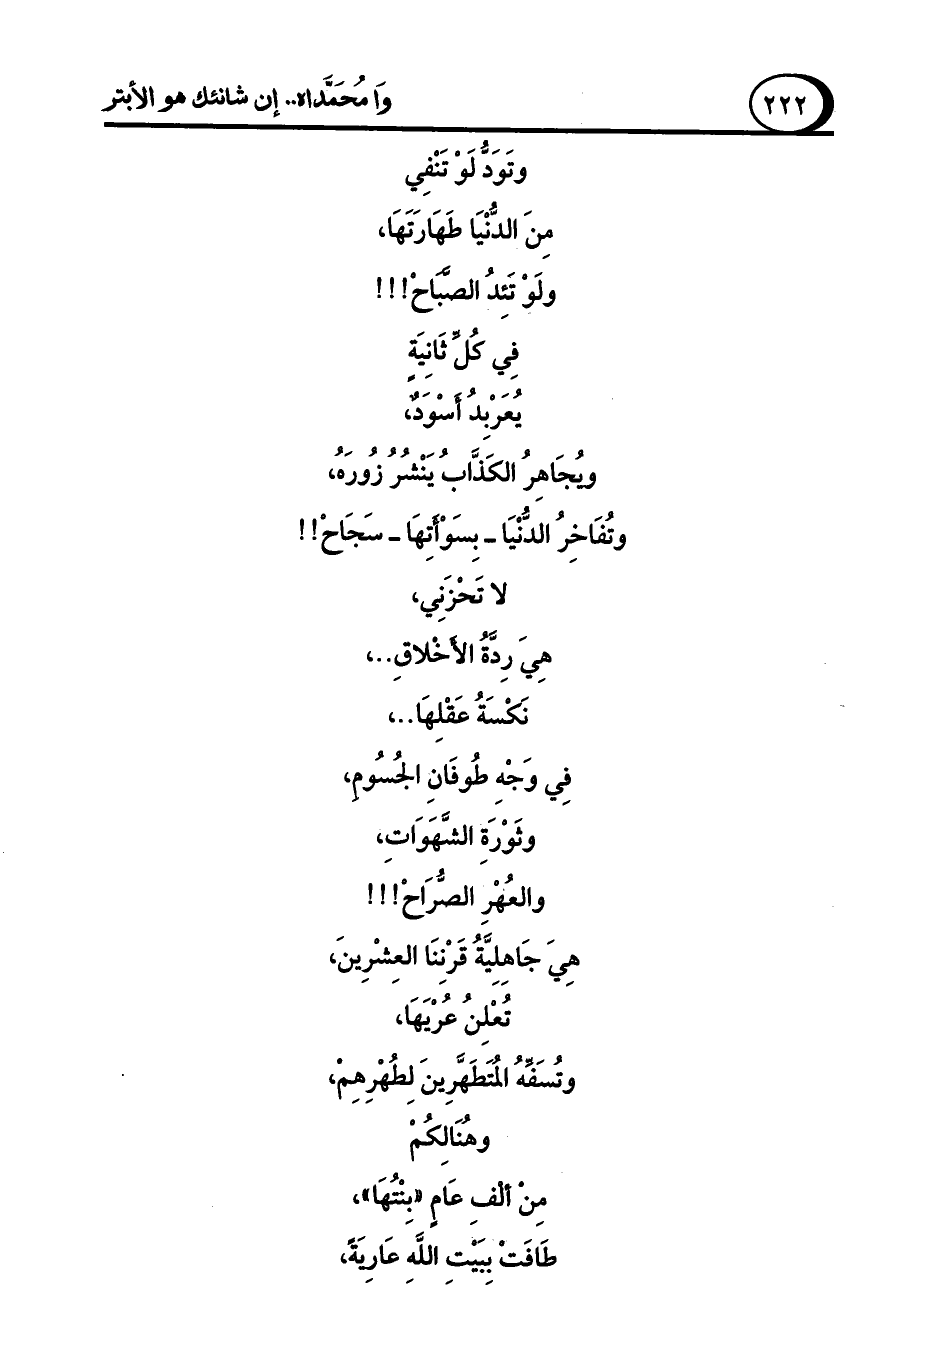 ٢٢٢
وَا مُحَمَّداه.. إن شانئك هو الأبتر
وتَوَدُّ لَوْ تَنْفِي
مِنَ الدُّنْيَا طَهَارَتَهَا،
ولَوْ تَئِدُ الصَّبَاحْ!!!
فِي كُلِّ ثَانِيَةٍ
يُعَرْبِدُ أَسْوَدٌ،
ويُجَاهِرُ الكَذَّابُ يَنْشُرُ زُورَهُ،
وتُفَاخِرُ الدُّنْيَا ـ بِسَوْأَتِهَا ـ سَجَاحْ!!
لا تَحْزَنِي،
هِيَ رِدَّةُ الأَخْلاقِ..،
نَكْسَةُ عَقْلِهَا..،
فِي وَجْهِ طُوفَانِ الجُسُومِ،
وثَوْرَةِ الشَّهَوَاتِ،
والعُهْرِ الصُّرَاحْ!!!
هِيَ جَاهِلِيَّةُ قَرْنِنَا العِشْرِينَ،
تُعْلِنُ عُرْيَهَا،
وتُسَفِّهُ المُتَطَهَّرِينَ لِطُهْرِهِمْ،
وهُنَالِكُمْ
مِنْ ألْفِ عَامٍ «بِنْتُهَا»،
طَافَتْ بِبَيْتِ اللَّهِ عَارِيَةً،